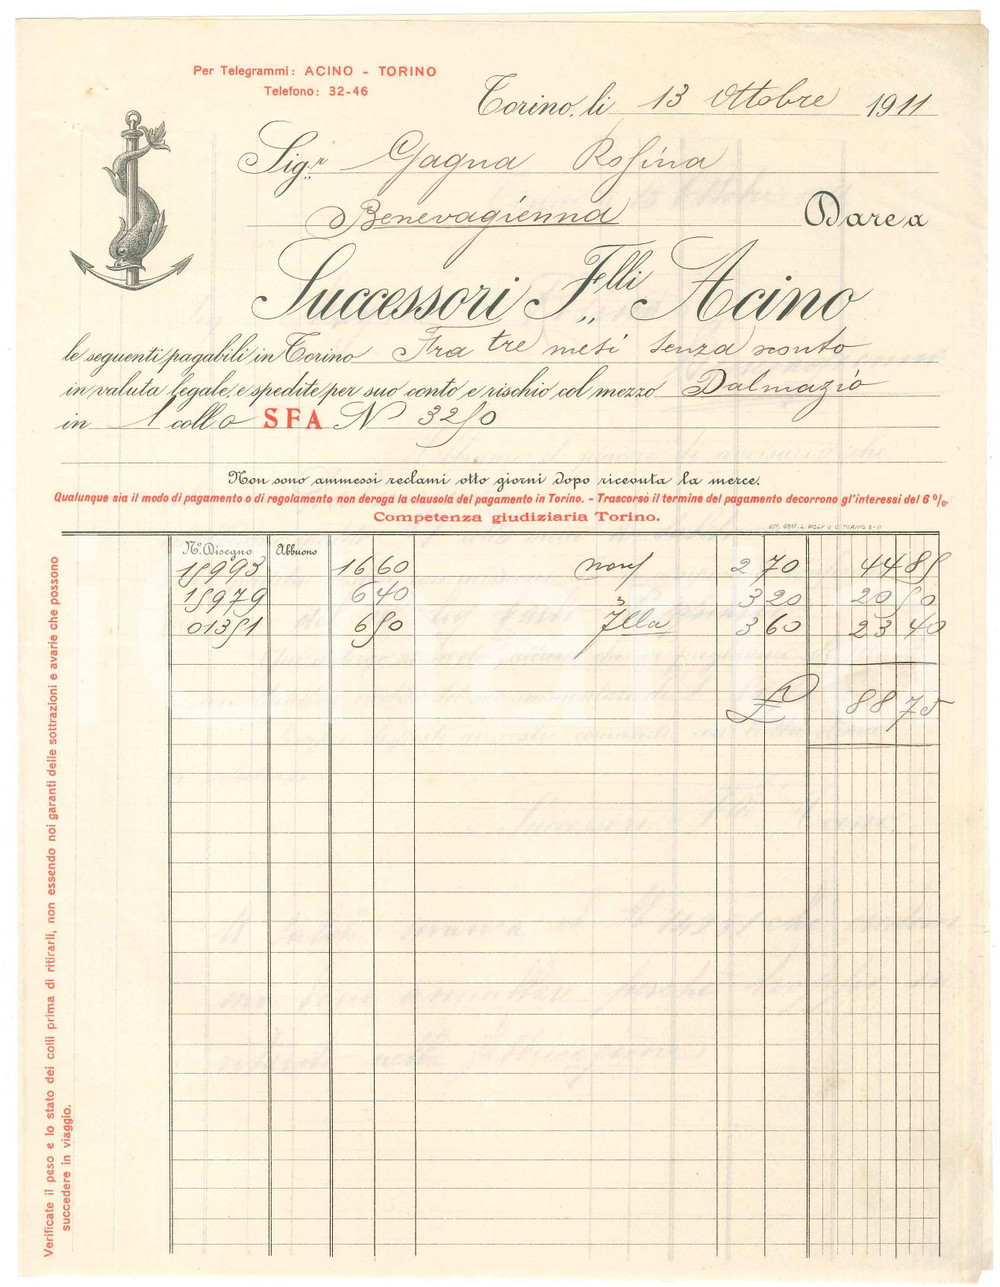 Per Telegrammi: ACINO - TORINO
Telefono: 32-46
Torino, li 13 Ottobre 1911
Sig.r Gagna Rosina
Benevagienna Dare a
Successori F.lli Acino
le seguenti pagabili in Torino Fra tre mesi senza sconto
in valuta legale, e spedite per suo conto e rischio col mezzo Dalmazio
in 1 collo SFA N 3250
Non sono ammessi reclami otto giorni dopo ricevuta la merce.
Qualunque sia il modo di pagamento o di regolamento non deroga la clausola del pagamento in Torino. - Trascorso il termine del pagamento decorrono gl'interessi del 6%.
Competenza giudiziaria Torino.
N.° Disegno Abbuono
15993 16 60 2 70 44 85
15979 6 40 3 20 20 50
01351 6 50 3 60 23 40
£ 88 75
Verificate il peso e lo stato dei colli prima di ritirarli, non essendo noi garanti delle sottrazioni e avarie che possono
succedere in viaggio.